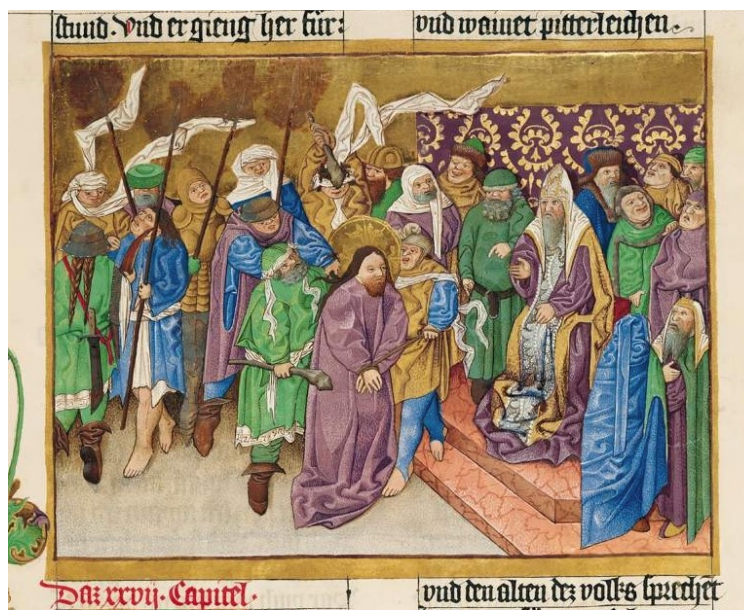 stund. Vnd er gieng her für:
vnd wainet pitterleichen.
Daz xxvij. Capitel.
vnd den alten dez volks sprechet